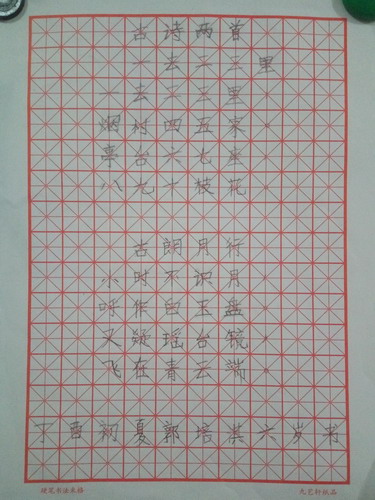 古诗两首
一去二三里
一去二三里
烟村四五家
亭台六七座
八九十枝花
古朗月行
小时不识月
呼作白玉盘
又疑瑶台镜
飞在青云端
丁酉初夏郭培淇六岁书
硬笔书法米格
九艺轩纸品